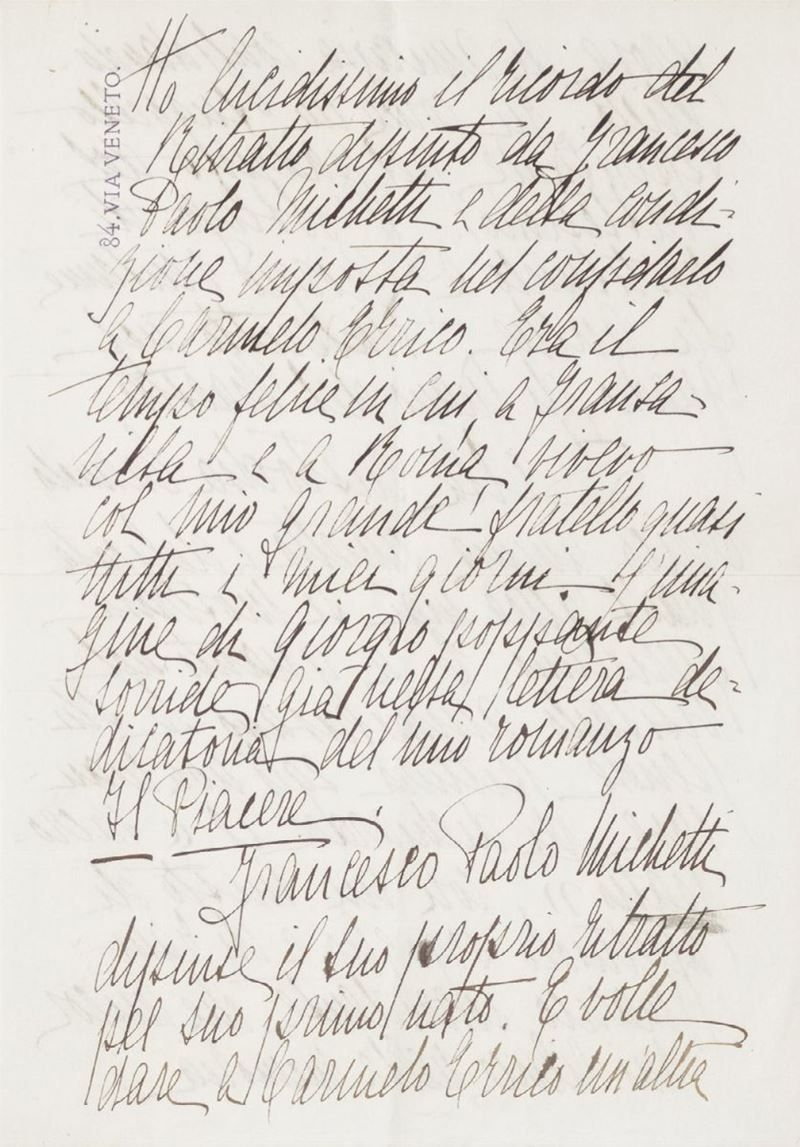 84, VIA VENETO.
Ho lucidissimo il ricordo del
Ritratto dipinto da Francesco
Paolo Michetti e della condi-
zione imposta nel confidarlo
a Carmelo Errico. Era il
tempo felice in cui, a Franca-
villa e a Roma, vivevo
col mio grande fratello quasi
tutti i miei giorni. L'ima-
gine di Giorgio poppante
sorride già nella lettera de-
dicatoria del mio romanzo
Il Piacere.
Francesco Paolo Michetti
dipinse il suo proprio ritratto
pel suo primo nato. E volle
dare a Carmelo Errico un'altra